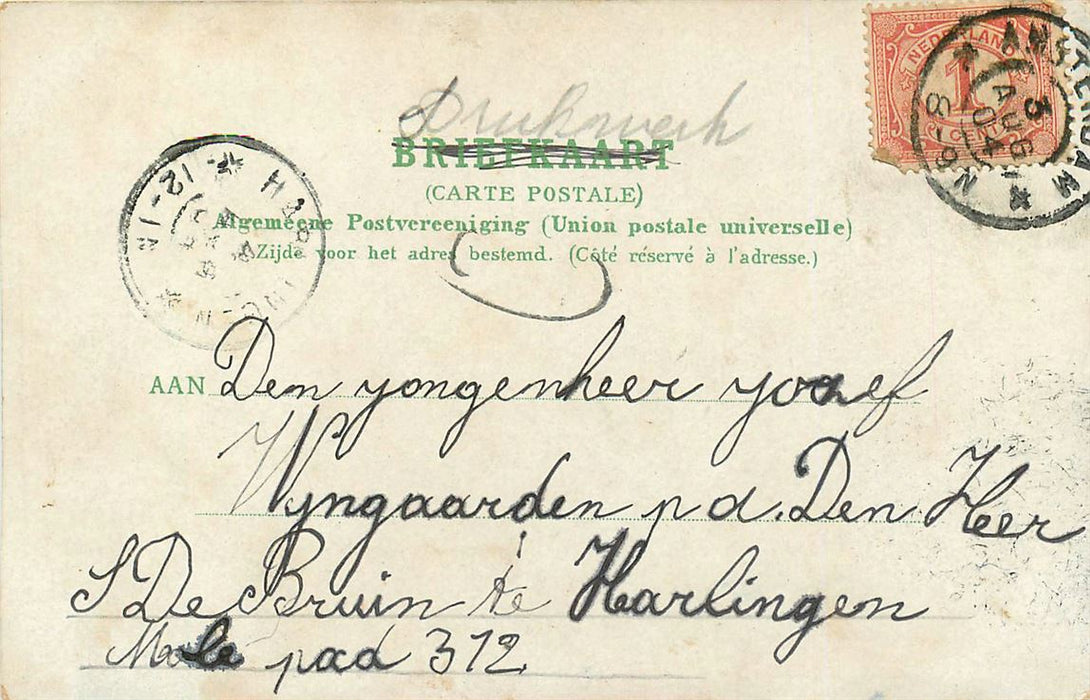 NEDERLAND
1
CENT
AMSTERDAM
3
AUG
04
8-9 N
Drukwerk
BRIEFKAART
(CARTE POSTALE)
Algemeene Postvereeniging (Union postale universelle)
Zijde voor het adres bestemd. (Côté réservé à l'adresse.)
12-1N
AAN Den yongenheer yozef
Wyngaarden p d. Den Heer
S De Bruin te Harlingen
Mole pad 312